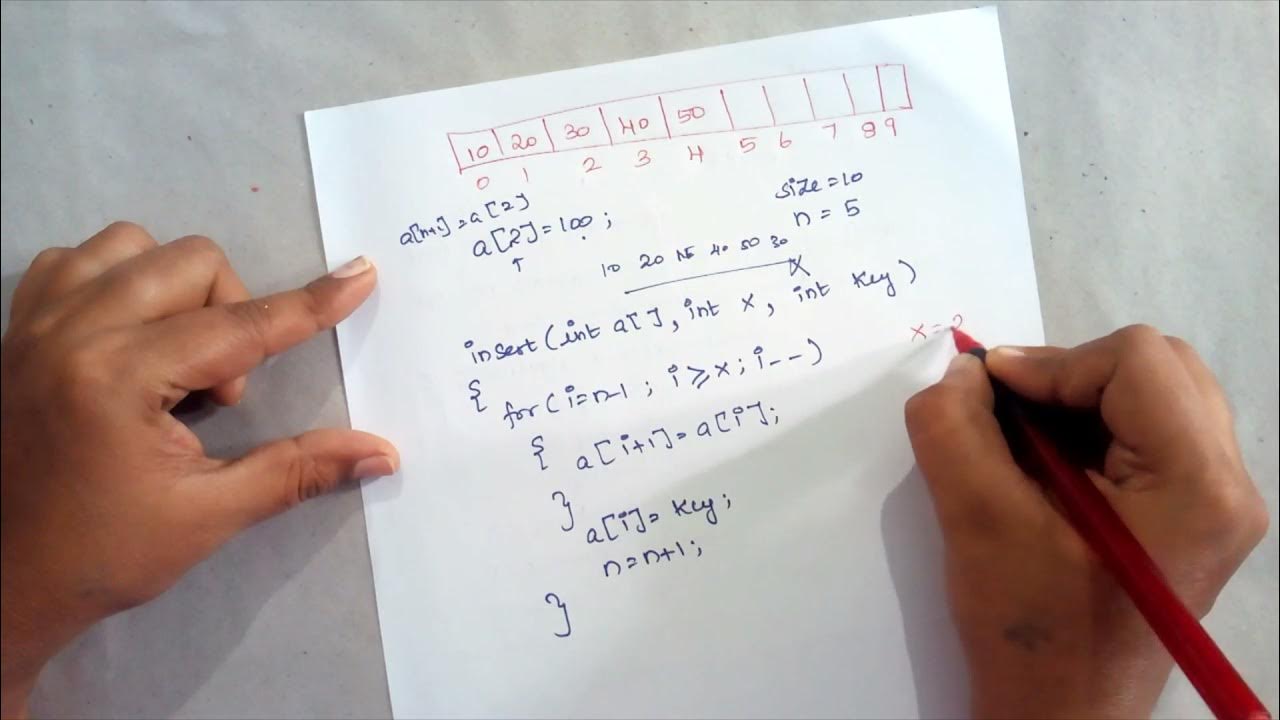 10 20 30 40 50
0 1 2 3 4 5 6 7 8 9
a[n+1]=a[2]
a[2]=100;
size=10
n=5
10 20 40 50 30
x
insert(int a[], int x, int key)
{ for(i=n-1; i≥x; i--)
{ a[i+1]=a[i];
}
a[i]=key;
n=n+1;
}
x=